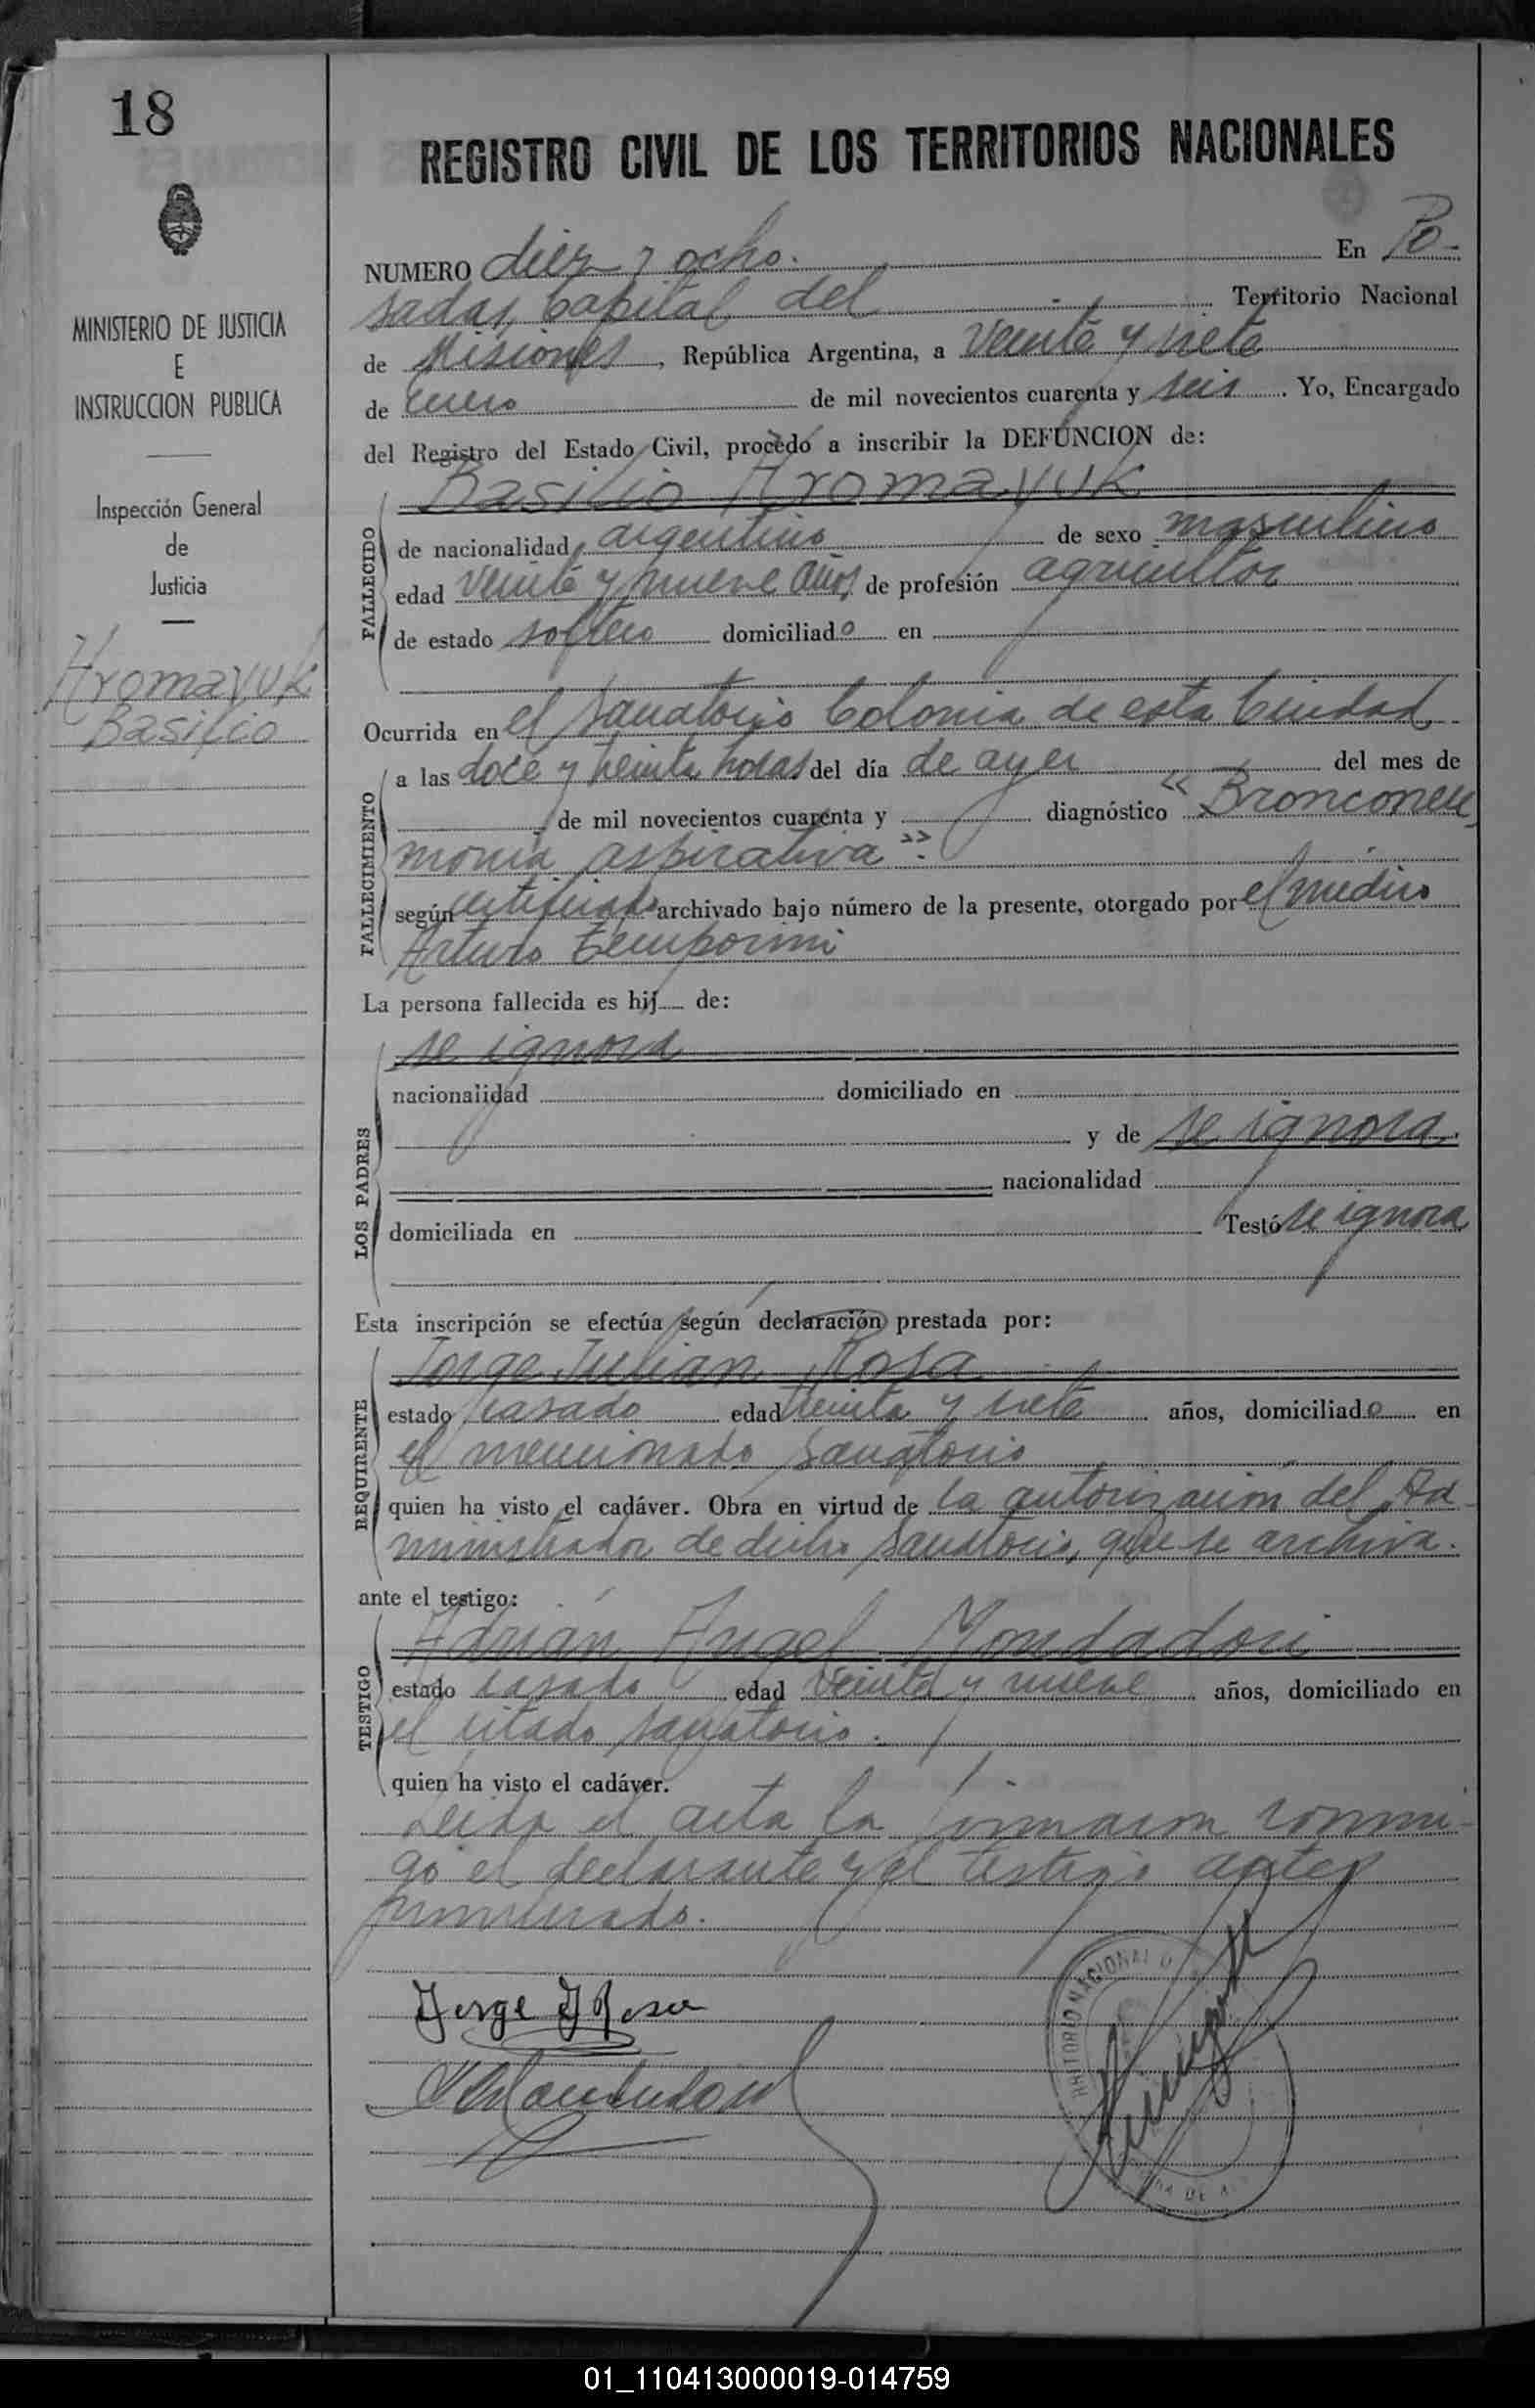 18
MINISTERIO DE JUSTICIA
E
INSTRUCCION PUBLICA
Inspección General
de
Justicia
Hromayuk
Basilio
REGISTRO CIVIL DE LOS TERRITORIOS NACIONALES
NUMERO diez y ocho. En Po-
sadas, Capital del Territorio Nacional
de Misiones, República Argentina, a veinte y siete
de enero de mil novecientos cuarenta y seis. Yo, Encargado
del Registro del Estado Civil, procedo a inscribir la DEFUNCION de:
Basilio Hromayuk
FALLECIDO
de nacionalidad argentino de sexo masculino
edad veinte y nueve años, de profesión agricultor
de estado soltero domiciliado en
Ocurrida en el Sanatorio Colonia de esta Ciudad
FALLECIMIENTO
a las doce y treinta horas del día de ayer del mes de
de mil novecientos cuarenta y diagnóstico "Bronconeu
monia aspirativa".
según certificado archivado bajo número de la presente, otorgado por el médico
Arturo Temporini
La persona fallecida es hij de:
LOS PADRES
se ignora
nacionalidad domiciliado en
y de se ignora.
nacionalidad
domiciliada en Testó se ignora
Esta inscripción se efectúa según declaración prestada por:
REQUIRENTE
Jorge Julian Rosa
estado casado edad treinta y siete años, domiciliado en
el mencionado Sanatorio
quien ha visto el cadáver. Obra en virtud de la autorización del Ad-
ministrador de dicho Sanatorio, que se archiva.
ante el testigo:
TESTIGO
Adrián Angel Mondadori
estado casado edad veinte y nueve años, domiciliado en
el citado Sanatorio.
quien ha visto el cadáver.
Leida el acta la firmaron conmi-
go el declarante y el testigo antes
nombrado.
Jorge J Rosa
RRITORIO NACIONAL
01_110413000019-014759